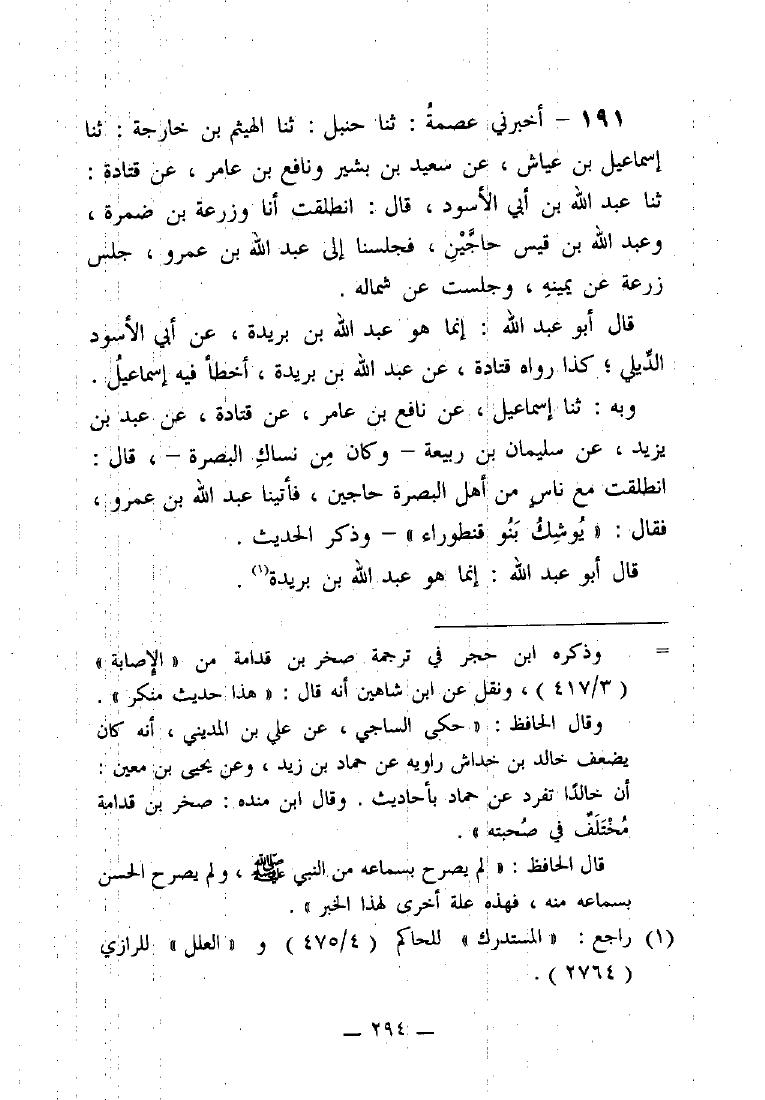 ١٩١ – أخبرني عصمةُ : ثنا حنبل : ثنا الهيثم بن خارجة : ثنا
إسماعيل بن عياش ، عن سعيد بن بشير ونافع بن عامر ، عن قتادة :
ثنا عبد الله بن أبي الأسود ، قال : انطلقت أنا وزرعة بن ضمرة ،
وعبد الله بن قيس حاجَّيْنِ ، فجلسنا إلى عبد الله بن عمرو ، جلس
زرعة عن يمينهِ ، وجلست عن شماله .
قال أبو عبد الله : إنما هو عبد الله بن بريدة ، عن أبي الأسود
الدِّيلي ؛ كذا رواه قتادة ، عن عبد الله بن بريدة ، أخطأ فيه إسماعيلُ .
وبه : ثنا إسماعيل ، عن نافع بن عامر ، عن قتادة ، عن عبد بن
يزيد ، عن سليمان بن ربيعة – وكان مِن نساكِ البصرة – ، قال :
انطلقت مع ناسٍ من أهل البصرة حاجين ، فأتينا عبد الله بن عمرو ،
فقال : « يُوشِكُ بَنُو قنطوراء » – وذكر الحديث .
قال أبو عبد الله : إنما هو عبد الله بن بريدة(١) .
= وذكره ابن حجر في ترجمة صخر بن قدامة من « الإصابة »
( ٤١٧/٣ ) ، ونقل عن ابن شاهين أنه قال : « هذا حديث منكر » .
وقال الحافظ : « حكى الساجي ، عن علي بن المديني ، أنه كان
يضعف خالد بن خداش راويه عن حماد بن زيد ، وعن يحيى بن معين :
أن خالدًا تفرد عن حماد بأحاديث . وقال ابن منده : صخر بن قدامة
مُخْتَلَفٌ في صُحبته » .
قال الحافظ : « لم يصرح بسماعه من النبي ﷺ ، ولم يصرح الحسن
بسماعه منه ، فهذه علة أخرى لهذا الخبر » .
(١) راجع : « المستدرك » للحاكم ( ٤٧٥/٤ ) و « العلل » للرازي
( ٢٧٦٤ ) .
— ٢٩٤ —